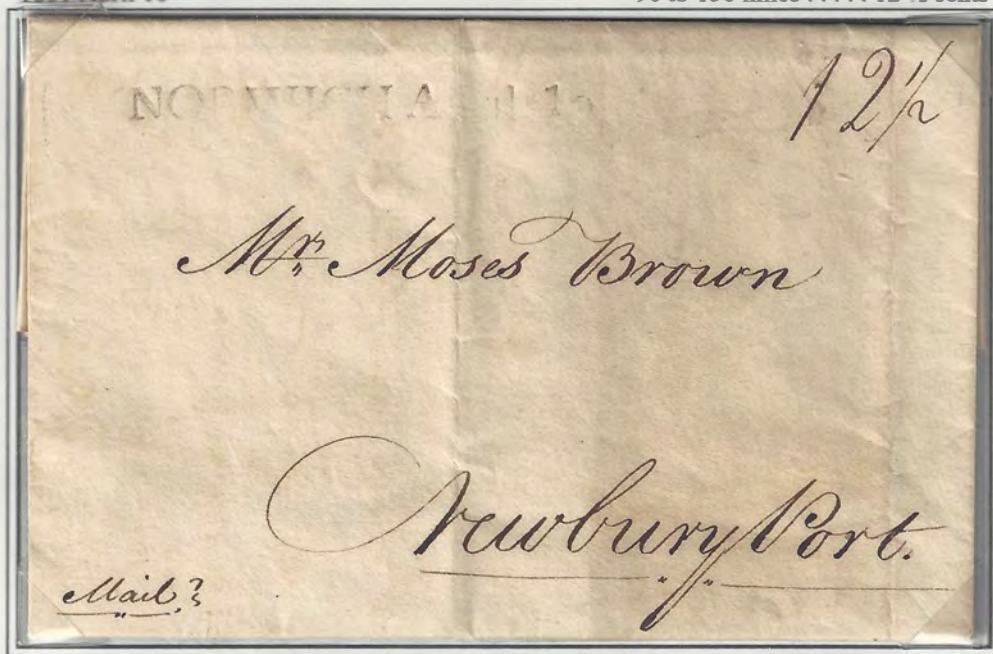 12 1/2
Mr. Moses Brown
Newbury Port.
Mail